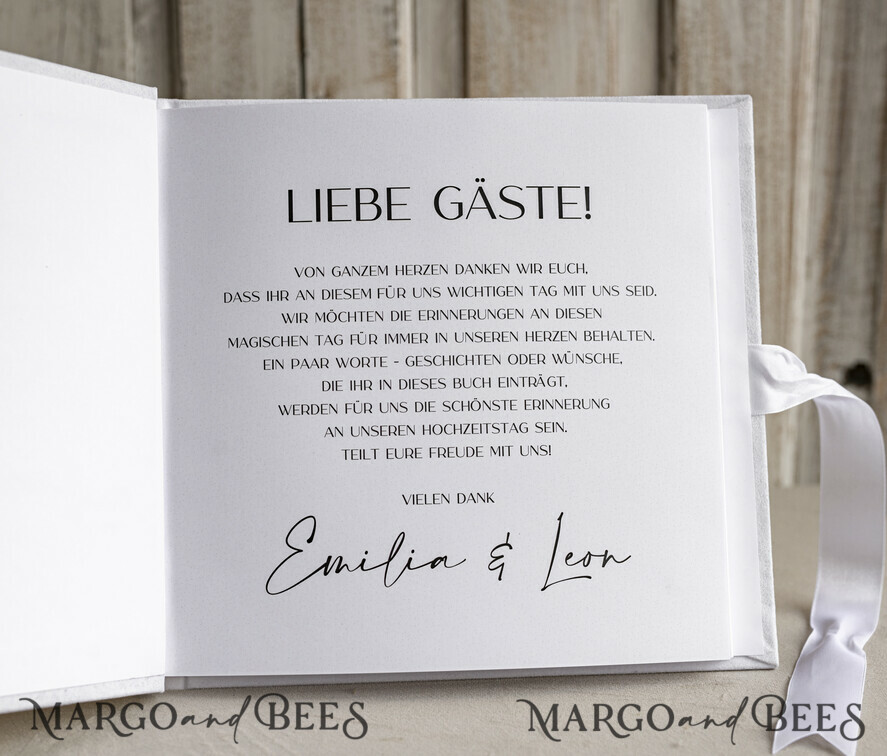 LIEBE GÄSTE!
VON GANZEM HERZEN DANKEN WIR EUCH,
DASS IHR AN DIESEM FÜR UNS WICHTIGEN TAG MIT UNS SEID.
WIR MÖCHTEN DIE ERINNERUNGEN AN DIESEN
MAGISCHEN TAG FÜR IMMER IN UNSEREN HERZEN BEHALTEN.
EIN PAAR WORTE - GESCHICHTEN ODER WÜNSCHE,
DIE IHR IN DIESES BUCH EINTRÄGT,
WERDEN FÜR UNS DIE SCHÖNSTE ERINNERUNG
AN UNSEREN HOCHZEITSTAG SEIN.
TEILT EURE FREUDE MIT UNS!
VIELEN DANK
Emilia & Leon
MARGO and BEES
MARGO and BEES